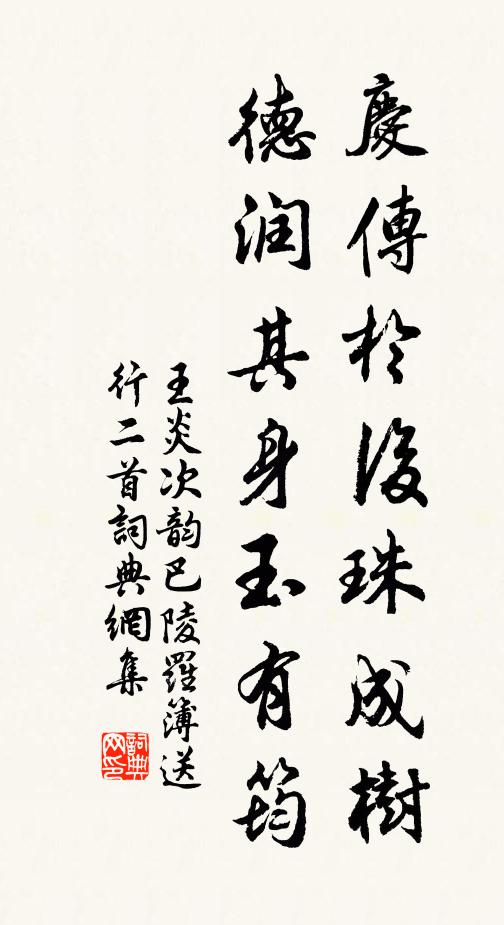 慶傳於後珠成樹
德润其身玉有筠
王炎次韵巴陵羅簿送
行二首詞典網集
詞典
网印